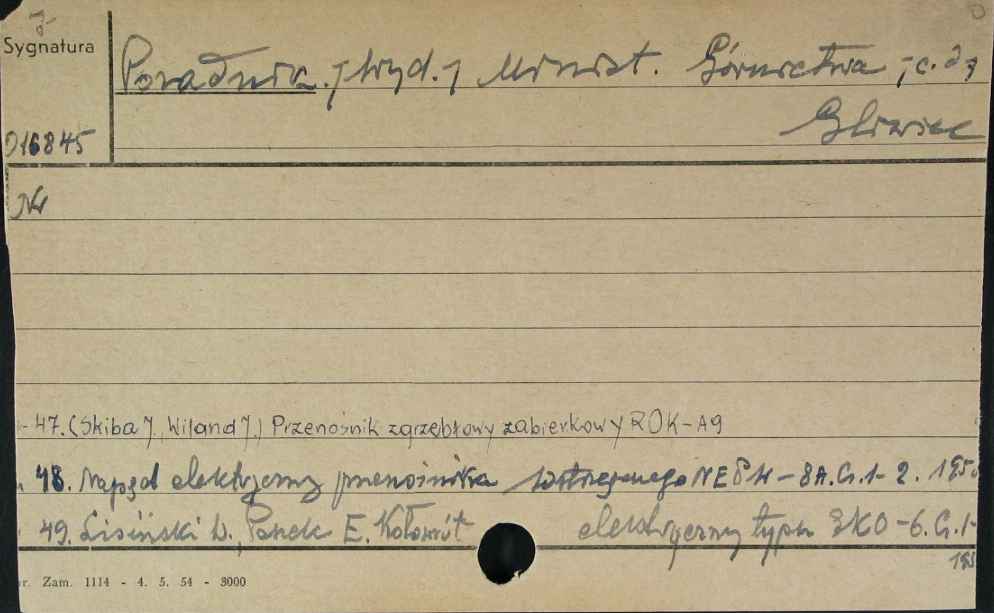 J
Sygnatura
Poradnia. /wyd./ Minist. Górnictwa /c.d/
Gliwice
D16845
Nr
47. (Skiba J., Wiland J.) Przenośnik zgrzebłowy zabierkowy ROK-A9
48. Napęd elektryczny przenośnika wstrząsanego NEPW-8A. Cz. 1-2. 195
49. Lisiński W., Panek E. Kołowrót elektryczny typu EKO-6. Cz. 1-
195
r. Zam. 1114 - 4. 5. 54 - 3000